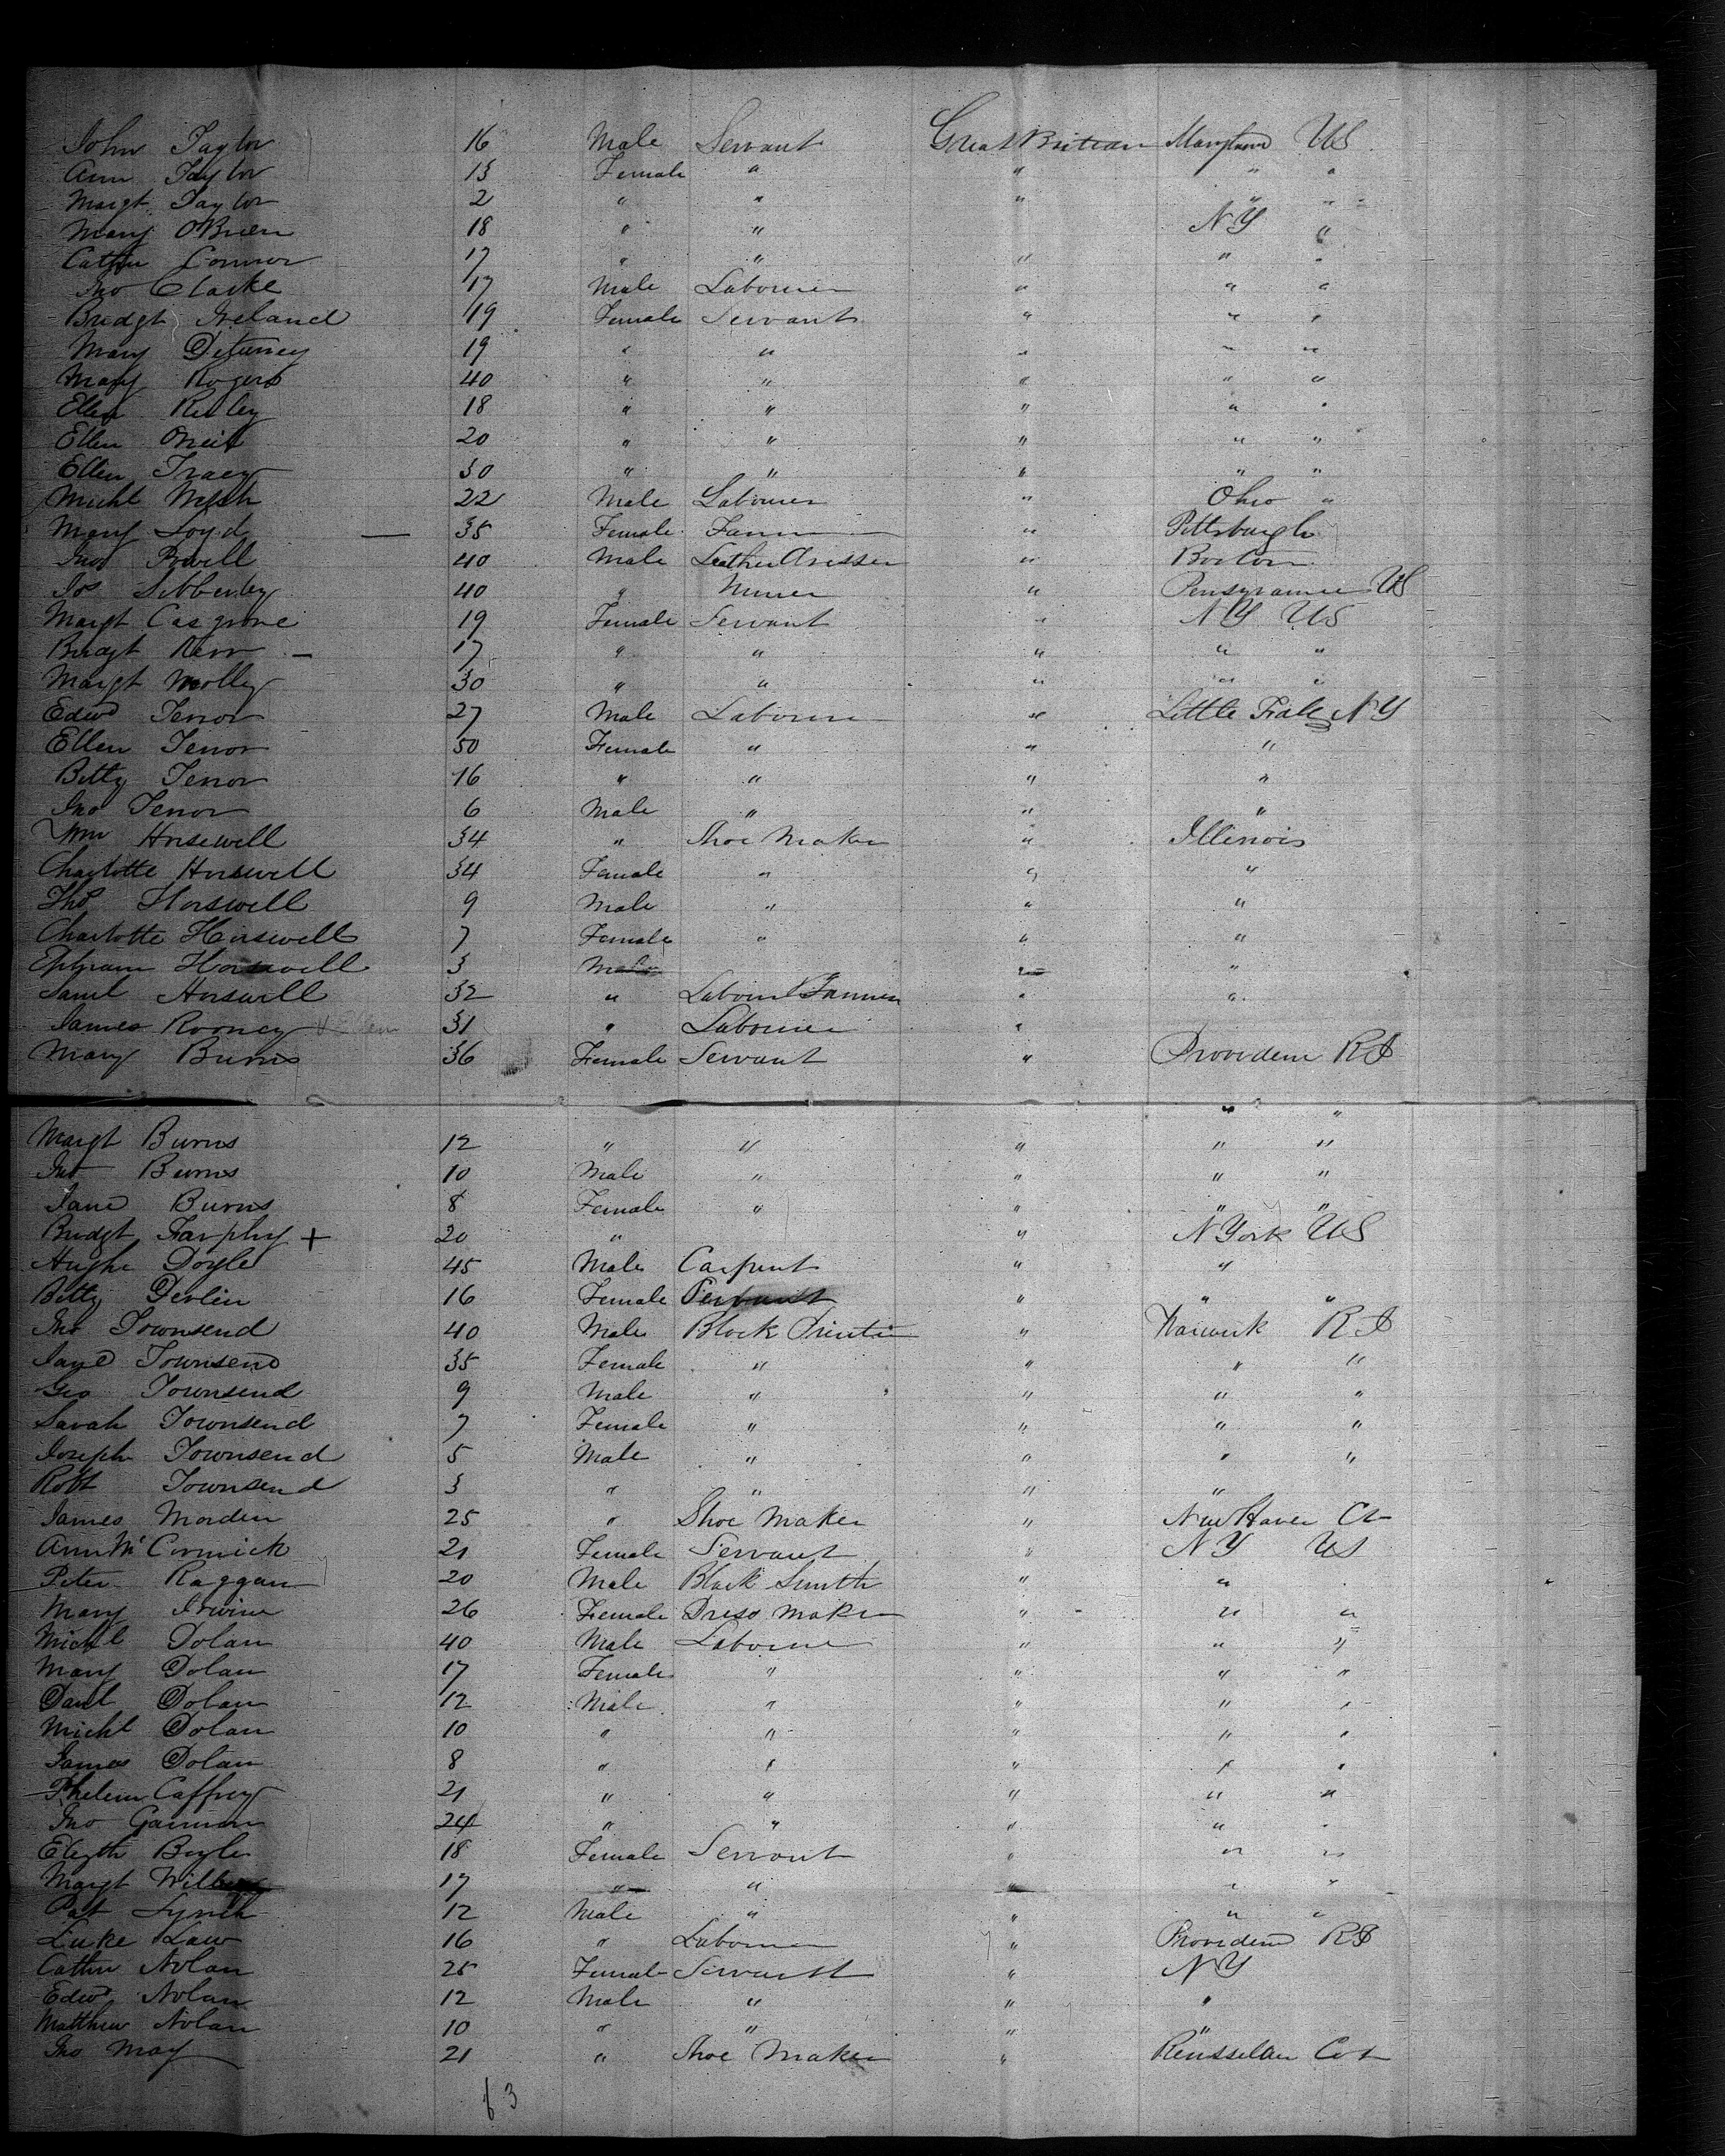 John Taylor 16 Male Servant Great Britian Maryland US
Ann Taylor 13 Female " " " "
Margt Taylor 2 " " " " "
Mary OBrien 18 " " NY "
Cathn Connor 17 " " " " "
Jno Clarke 17 Male Labourer " " "
Bridgt Ireland 19 Female Servant " " "
Mary 19 " " " " "
Mary Rogers 40 " " " " "
Ellen Reiley 18 " " " " "
Ellen Oneil 20 " " " " "
Ellen Tracy 30 " " " " "
Michl Welsh 22 Male Labourer " Ohio "
Mary Loyd — 35 Female " Pittsburgh
Jno Powell 40 Male Leather Dresser " Boston
Jos 40 " Miner " US
Margt Casgrove 19 Female Servant " NY US
Bridgt — 17 " " " " "
Margt Molloy 30 " " " " "
Edwd Tenor 27 Male Labourer " Little Falls NY
Ellen Tenor 50 Female " " "
Betty Tenor 16 " " " "
Jno Tenor 6 Male " " "
Wm Horsewell 34 " Shoe Maker " Illinois
Charlotte Horswell 34 Female " " "
Thos Horswell 9 Male " " "
Charlotte Horswell 7 Female " " "
Ephraim Horswell 3 Male " "
Saml Horswell 32 " " "
James Rooney 31 " Labourer "
Mary Burns 36 Female Servant " Providenc RI
" "
Margt Burns 12 " " " " "
Jno Burns 10 Male " " " "
Jane Burns 8 Female " " " "
Bridgt + 20 " " N York US
Hugh Doyle 45 Male Carpent " "
Betty Devlin 16 Female Servant " " "
Jno Townsend 40 Male Block Printer " Warwick RI
Jane Townsend 35 Female " " " "
Geo Townsend 9 Male " " " "
Sarah Townsend 7 Female " " " "
Joseph Townsend 5 Male " " " "
Robt Townsend 3 " " " "
James Morden 25 " Shoe Maker " New Haven Ct
Ann McCormick 21 Female Servant " NY US
Peter Raggan 20 Male Black Smith " "
Mary Irwin 26 Female Dress Maker " " "
Michl Dolan 40 Male Labourer " " "
Mary Dolan 17 Female " " " "
Danl Dolan 12 Male " " " "
Michl Dolan 10 " " " " "
James Dolan 8 " " " " "
Phelim Caffrey 21 " " " " "
Jno 24 " " " " "
Elizth Boyle 18 Female Servant " " "
Margt 17 " " " " "
Pat Lynch 12 Male " " " "
Luke Law 16 " Labourer " Providenc RI
Cathn Nolan 25 Female Servant " NY
Edwd Nolan 12 Male " " "
Matthew Nolan 10 " " " "
Jno May 21 " Shoe Maker " Rensselaer Co
63